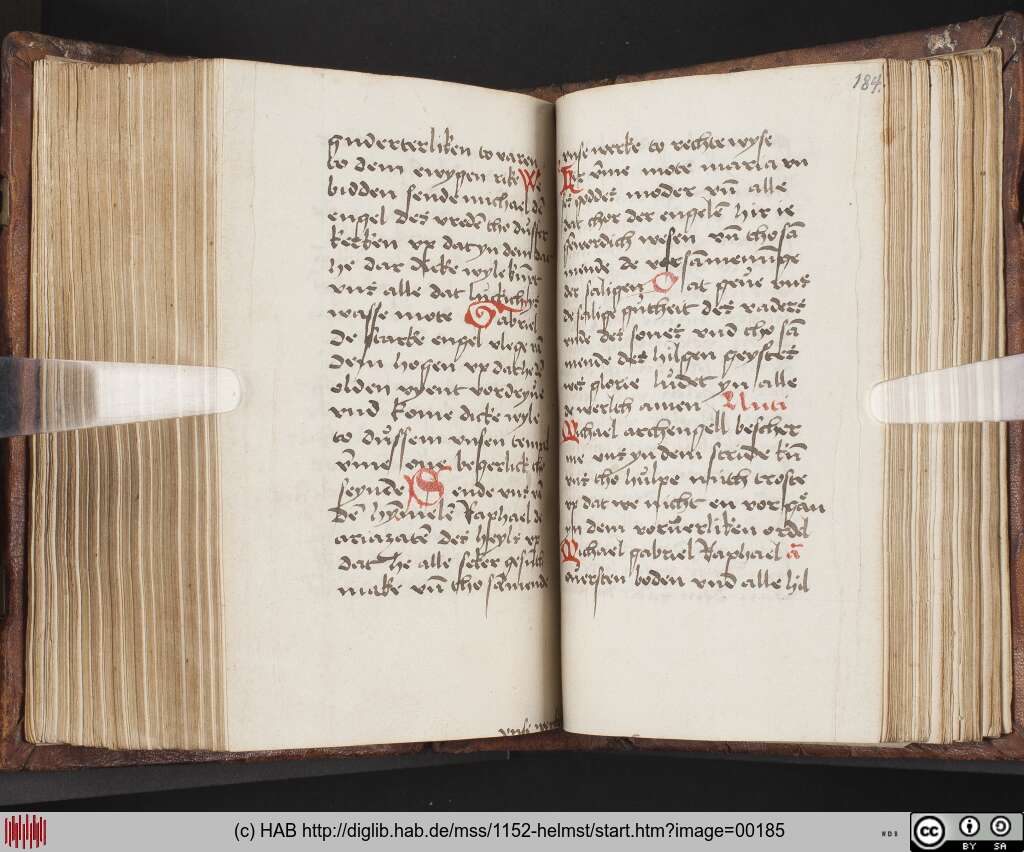 to dem ewygen rike We
bidden sende michael den
engel des vreden tho dusser
kerken vp dat yn dem dat
he dar dicke wyle kumpt
vns alle dat luckich
wasse mote Gabriel
De starke engel vlege van
Dem hogen vp dat he den
olden vyent vordryue
vnd kome dicke wyle
to dussem vnsen tempel
vmme begerlick tho
seynde Sende vns van
Den hymmelen Raphael de
des heyls vp
dat he alle seker gesunth
make vn tho samende
vnse werke
184.
vnse werke to rechte wyse
vmme mote maria vn
ses goddes moder vn alle
dat chor der engelen hir ie
genwerdich wesen vn tho sa
mende de vorsameninge
der saligen Dat geue vns
de salige gutheit des vaders
vnde des sones vnd tho sa
mende des hilgen geystes
wes glorie ludet yn alle
de werlth amen Anti
Michael archengell bescher
me vns yn dem stride kum
vns tho hulpe mith troste
vp dat we nicht en vorgan
yn dem voruerliken ordel
Michael gabriel Raphael a
ouersten boden vnd alle hil
(c) HAB http://diglib.hab.de/mss/1152-helmst/start.htm?image=00185
WDB
cc
BY SA